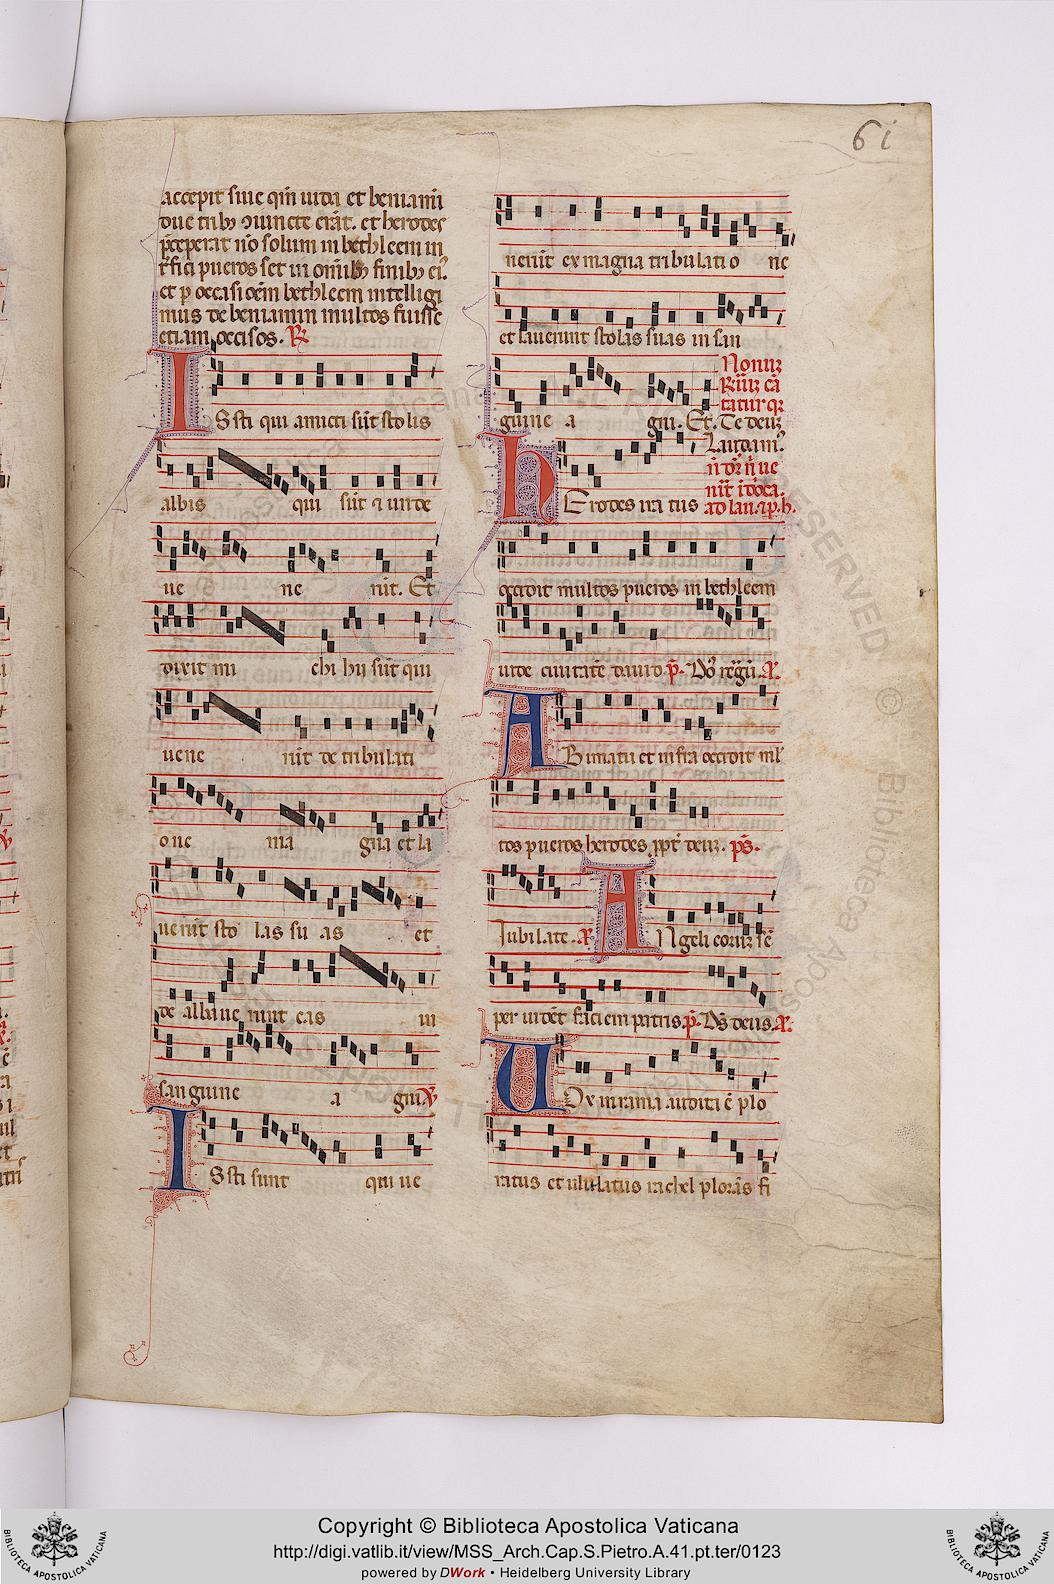 61
accepit siue qm̄ iuda et beniamī
due tribȝ ɔiuncte erāt. et herodes
p̄ceperat nō solum in bethleem in
t̄fici pueros set in om̄ibȝ finibȝ eiꝰ
et ꝑ occasioēm bethleem intelligi
mus de beniamin multos fuisse
etiam occisos. ℟
ISsti qui amicti sūt stolis
albis qui sūt ⁊ unde
ue ne rūt. Et
dixit mi chi hii sūt qui
uene rūt de tribulati
one ma gna et la
uerūt sto las su as et
de albaue runt eas in
sanguine a gni ℣
ISsti sunt qui ue
nerūt ex magna tribulatio ne
et lauerunt stolas suas in san
guine a gni. Et. Te deuȝ
Nonuȝ
℟iuȝ cā
tatur qȝ
Laudamꝰ
HErodes ira tus
occidit multos pueros in bethleem
iude ciuitate dauid p̄. Dō regū. A.
ABimatu et infra occidit ml̄
tos pueros herodes ꝓpt̄ deuȝ. p̄s.
Iubilate. A. ANgeli eoruȝ sē
per uidēt faciem patris. p̄. Dn̄s deus. A.
UOx in rama audita ē plo
ratus et ululatus rachel plorās fi
Copyright © Biblioteca Apostolica Vaticana
http://digi.vatlib.it/view/MSS_Arch.Cap.S.Pietro.A.41.pt.ter/0123
powered by DWork • Heidelberg University Library
BIBLIOTECA APOSTOLICA VATICANA
BIBLIOTECA APOSTOLICA VATICANA